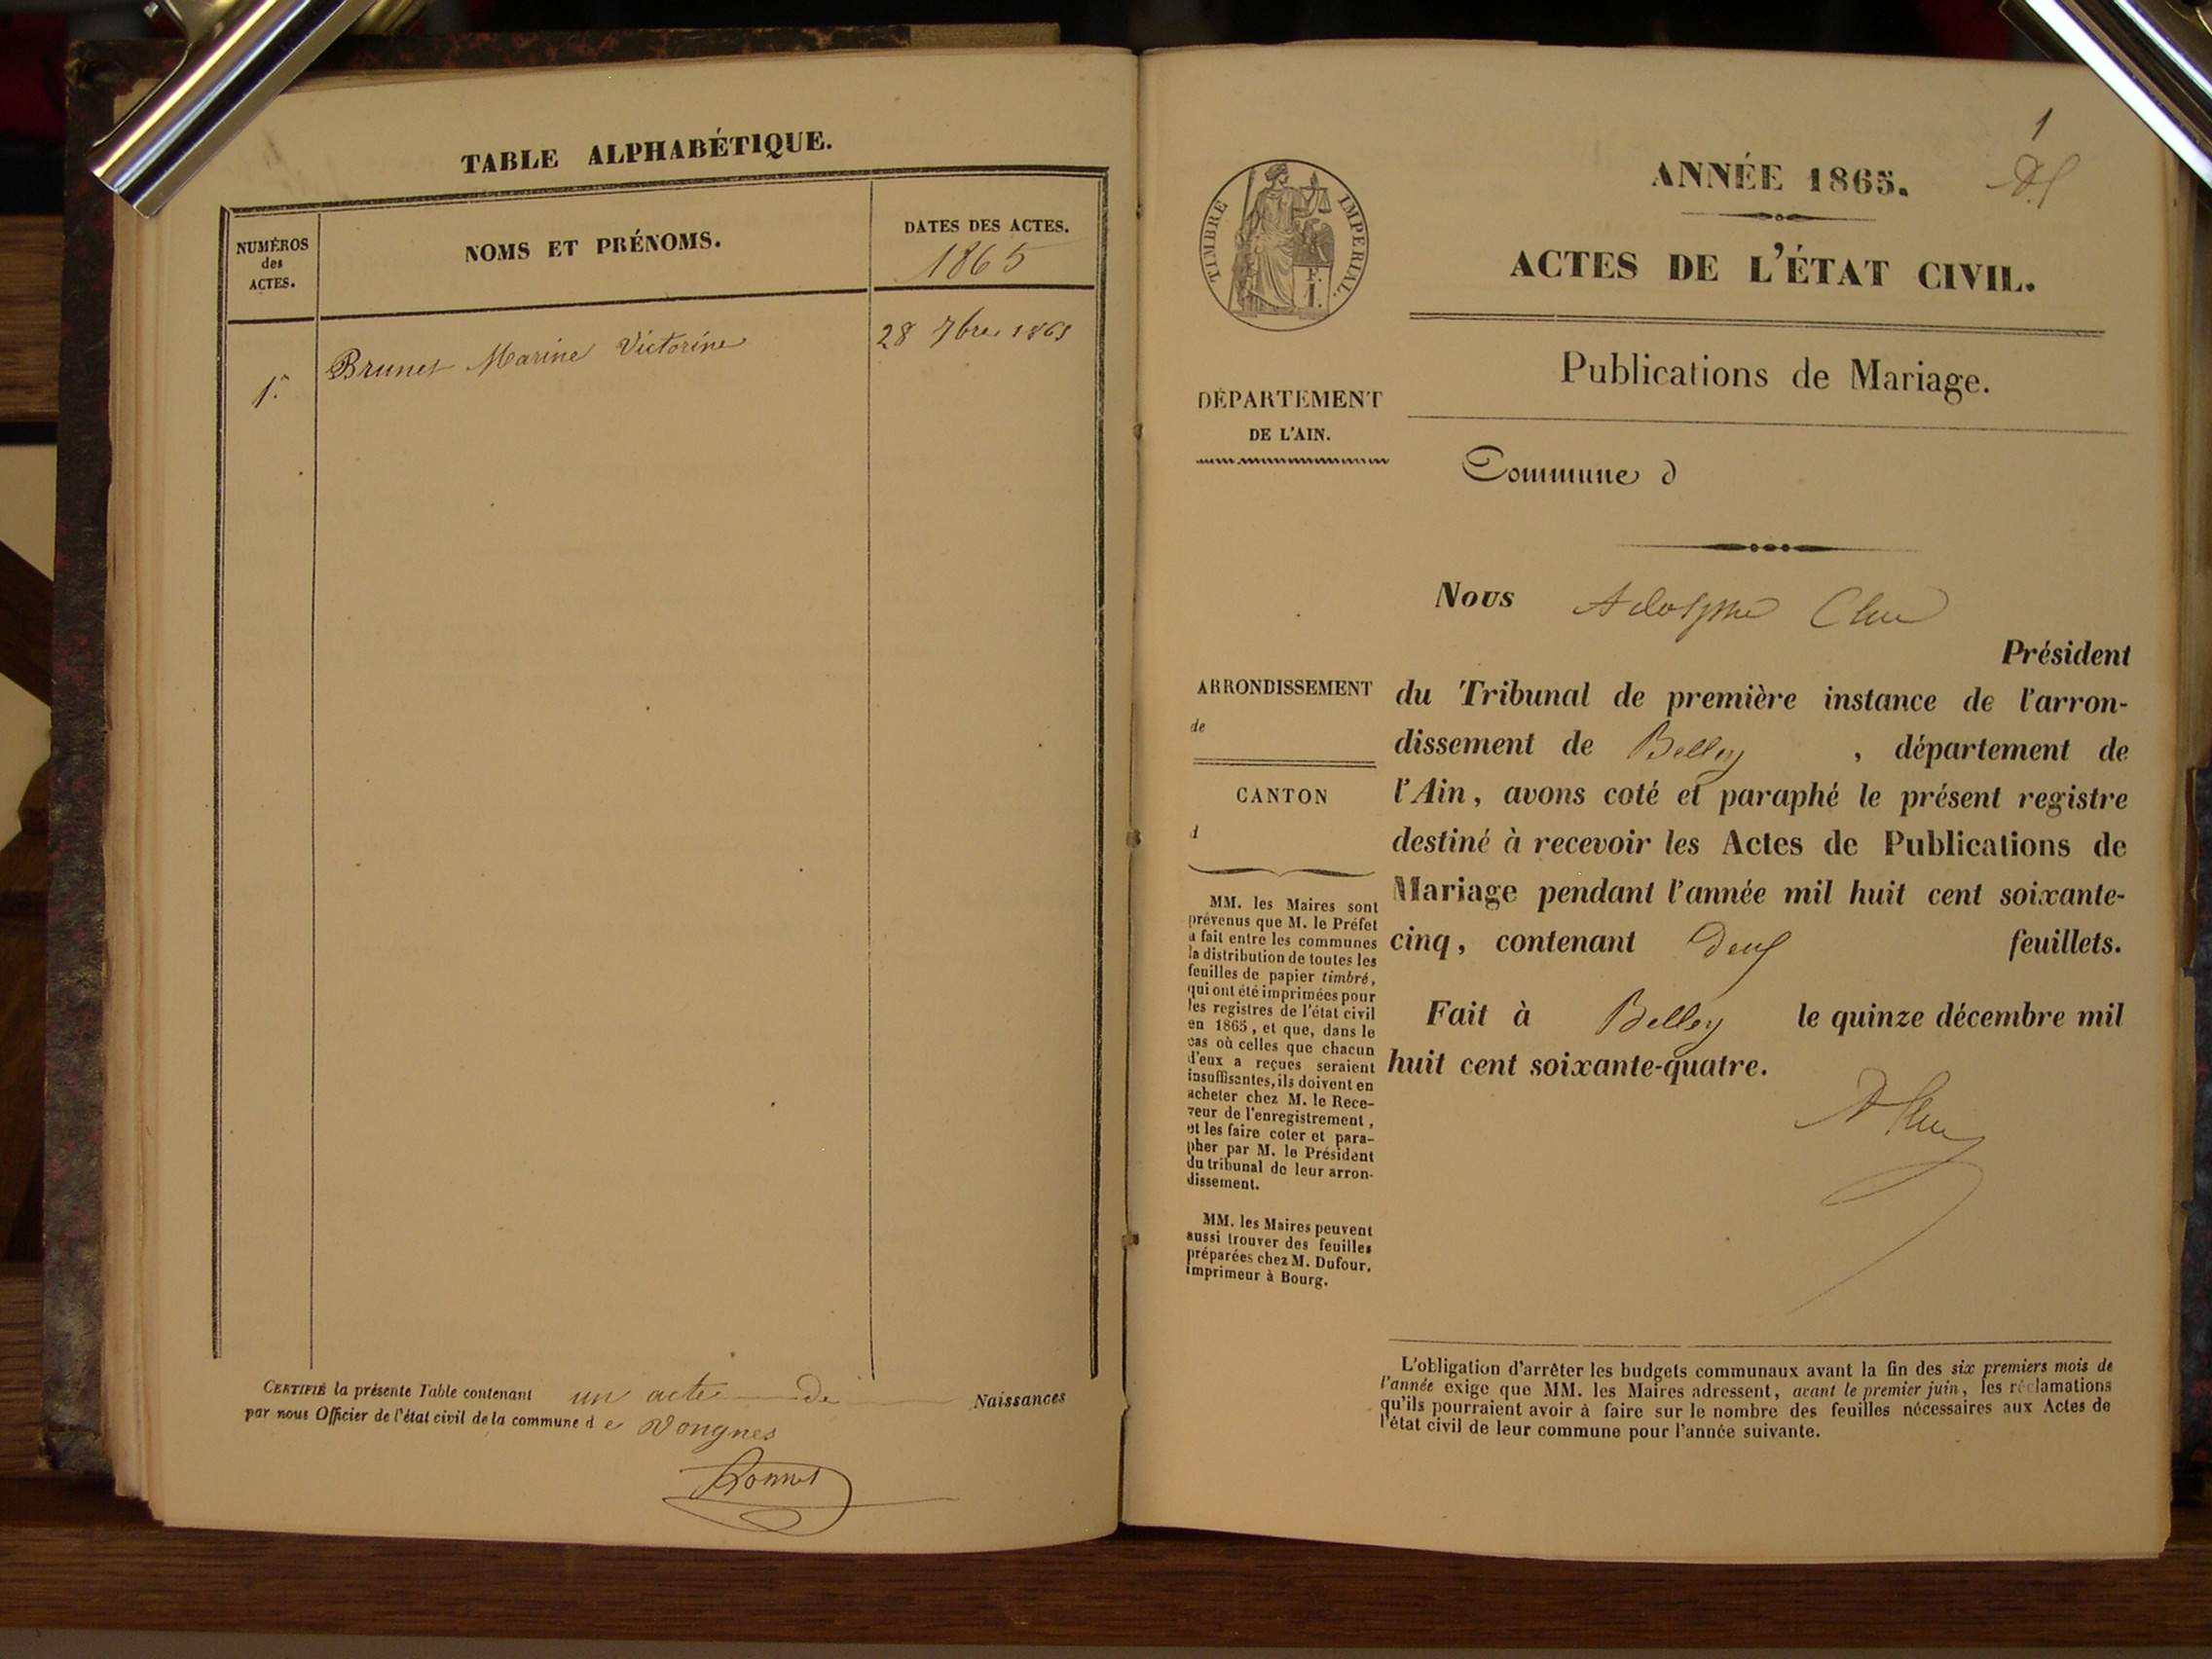 TABLE ALPHABÉTIQUE.
NUMÉROS
des
ACTES.
NOMS ET PRÉNOMS.
DATES DES ACTES.
1865
1.
Brunet Marine Victorine
28 7bre 1865
CERTIFIÉ la présente Table contenant un acte de Naissances
par nous Officier de l'état civil de la commune d e Vongnes
1
ANNÉE 1865.
ACTES DE L'ÉTAT CIVIL.
TIMBRE IMPERIAL.
Publications de Mariage.
DÉPARTEMENT
DE L'AIN.
Commune d
Nous Adolphe
Président
ARRONDISSEMENT
de
CANTON
d
du Tribunal de première instance de l'arron-
dissement de Belley , département de
l'Ain, avons coté et paraphé le présent registre
destiné à recevoir les Actes de Publications de
Mariage pendant l'année mil huit cent soixante-
cinq, contenant Deux feuillets.
Fait à Belley le quinze décembre mil
huit cent soixante-quatre.
MM. les Maires sont
prévenus que M. le Préfet
a fait entre les communes
la distribution de toutes les
feuilles de papier timbré,
qui ont été imprimées pour
les registres de l'état civil
en 1865, et que, dans le
cas où celles que chacun
d'eux a reçues seraient
insuffisantes, ils doivent en
acheter chez M. le Rece-
veur de l'enregistrement,
et les faire coter et para-
pher par M. le Président
du tribunal de leur arron-
dissement.
MM. les Maires peuvent
aussi trouver des feuilles
préparées chez M. Dufour,
imprimeur à Bourg.
L'obligation d'arrêter les budgets communaux avant la fin des six premiers mois de
l'année exige que MM. les Maires adressent, avant le premier juin, les réclamations
qu'ils pourraient avoir à faire sur le nombre des feuilles nécessaires aux Actes de
l'état civil de leur commune pour l'année suivante.